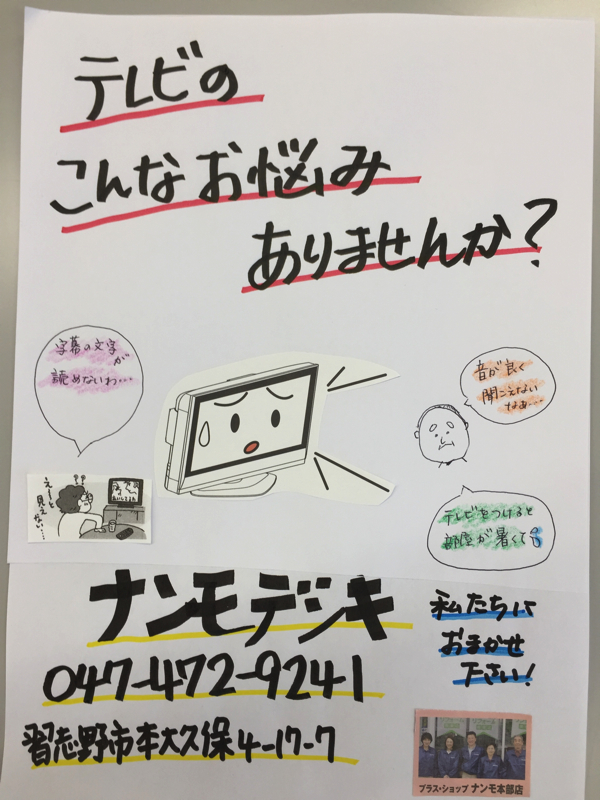 テレビの
こんなお悩み
ありませんか?
字幕の文字が
読めないわ…
音が良く
聞こえない
なぁ…
えーと
見えない…
テレビをつけると
部屋が暑くて
ナンモデンキ
047-472-9241
習志野市本大久保4-17-7
私たちに
おまかせ
下さい!
プラス・ショップ ナンモ本部店